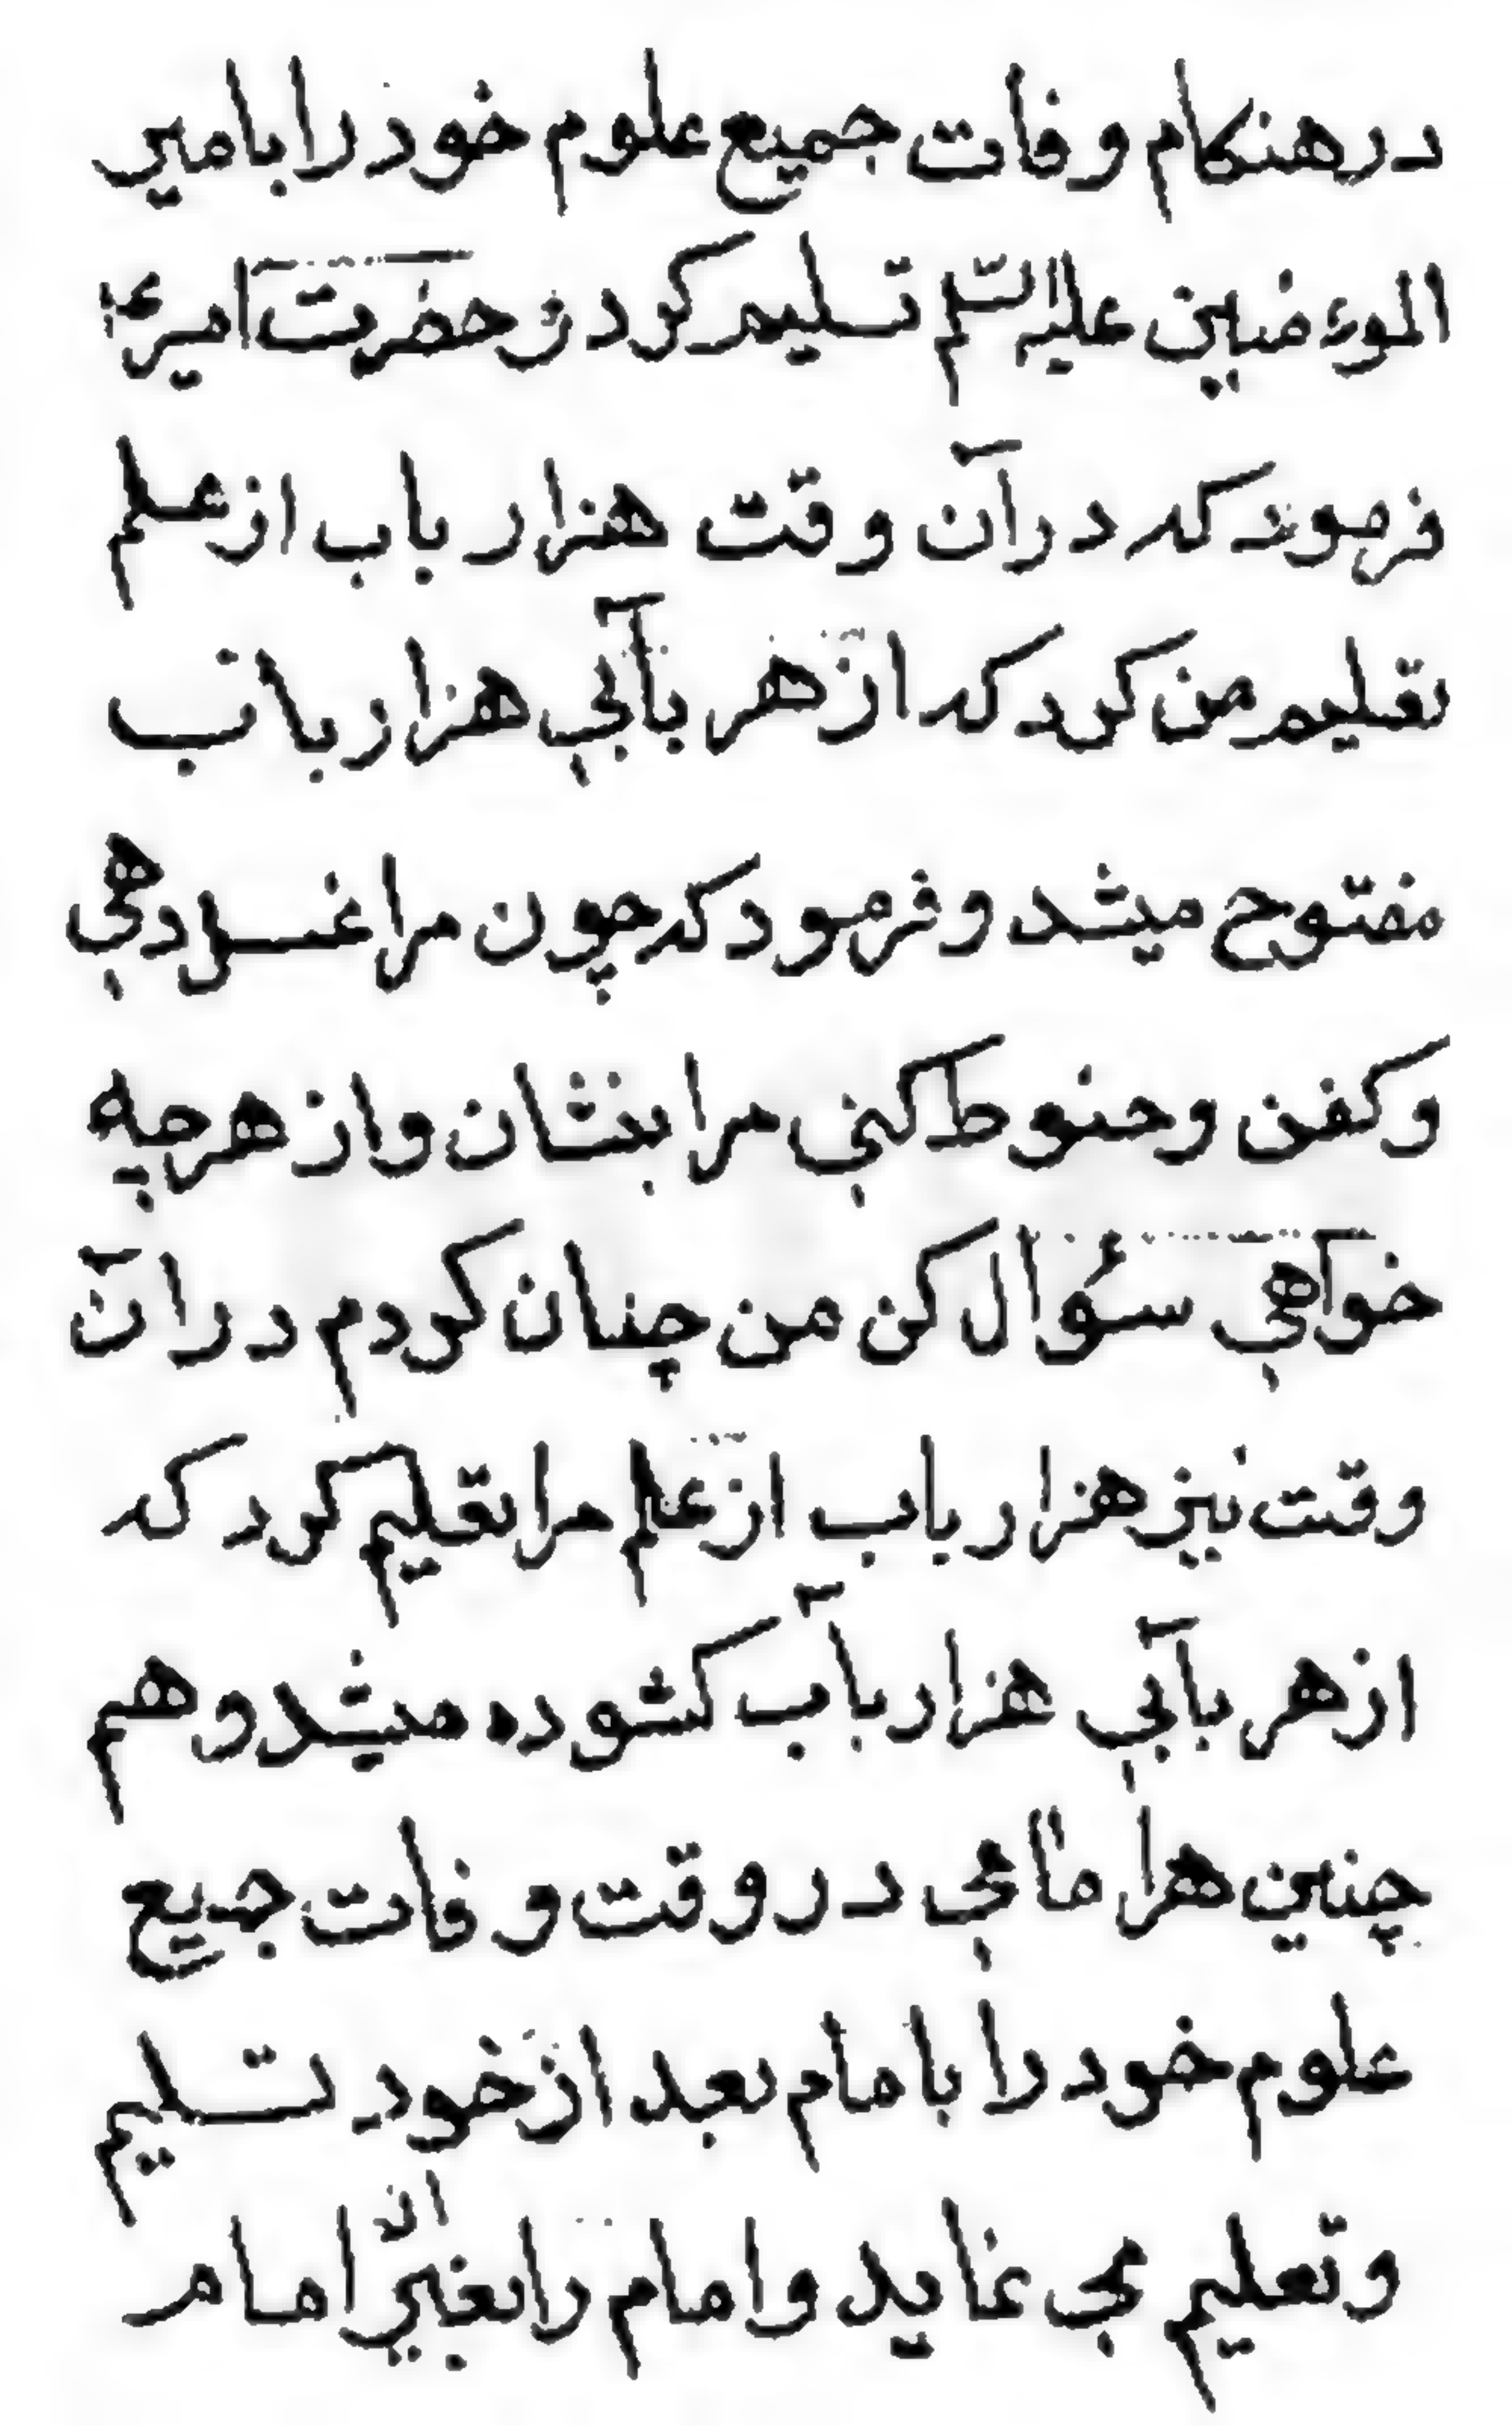 در هنکام وفات جمیع علوم خود را بامیر
الموءمنین علیه السّلم تسلیم کرد و حضرت امیر ع
فرمود که در آن وقت هزار باب از علم
تعلیم من کرد که از هر بآبی هزار باب
مفتوح میشد و فرمود که چون مرا غسل دهی
و کفن و حنوط کنی مرا بنشان و از هر چه
خوآهی سئوال کن من چنان کردم در آن
وقت نیز هزار باب از علم مرا تعلیم کرد که
از هر بآبی هزار بآب کشوده میشد و هم
چنین هر امامی در وقت وفات جمیع
علوم خود را بامام بعد از خود تسلیم
و تعلیم می نماید و امام را بغیر از امام